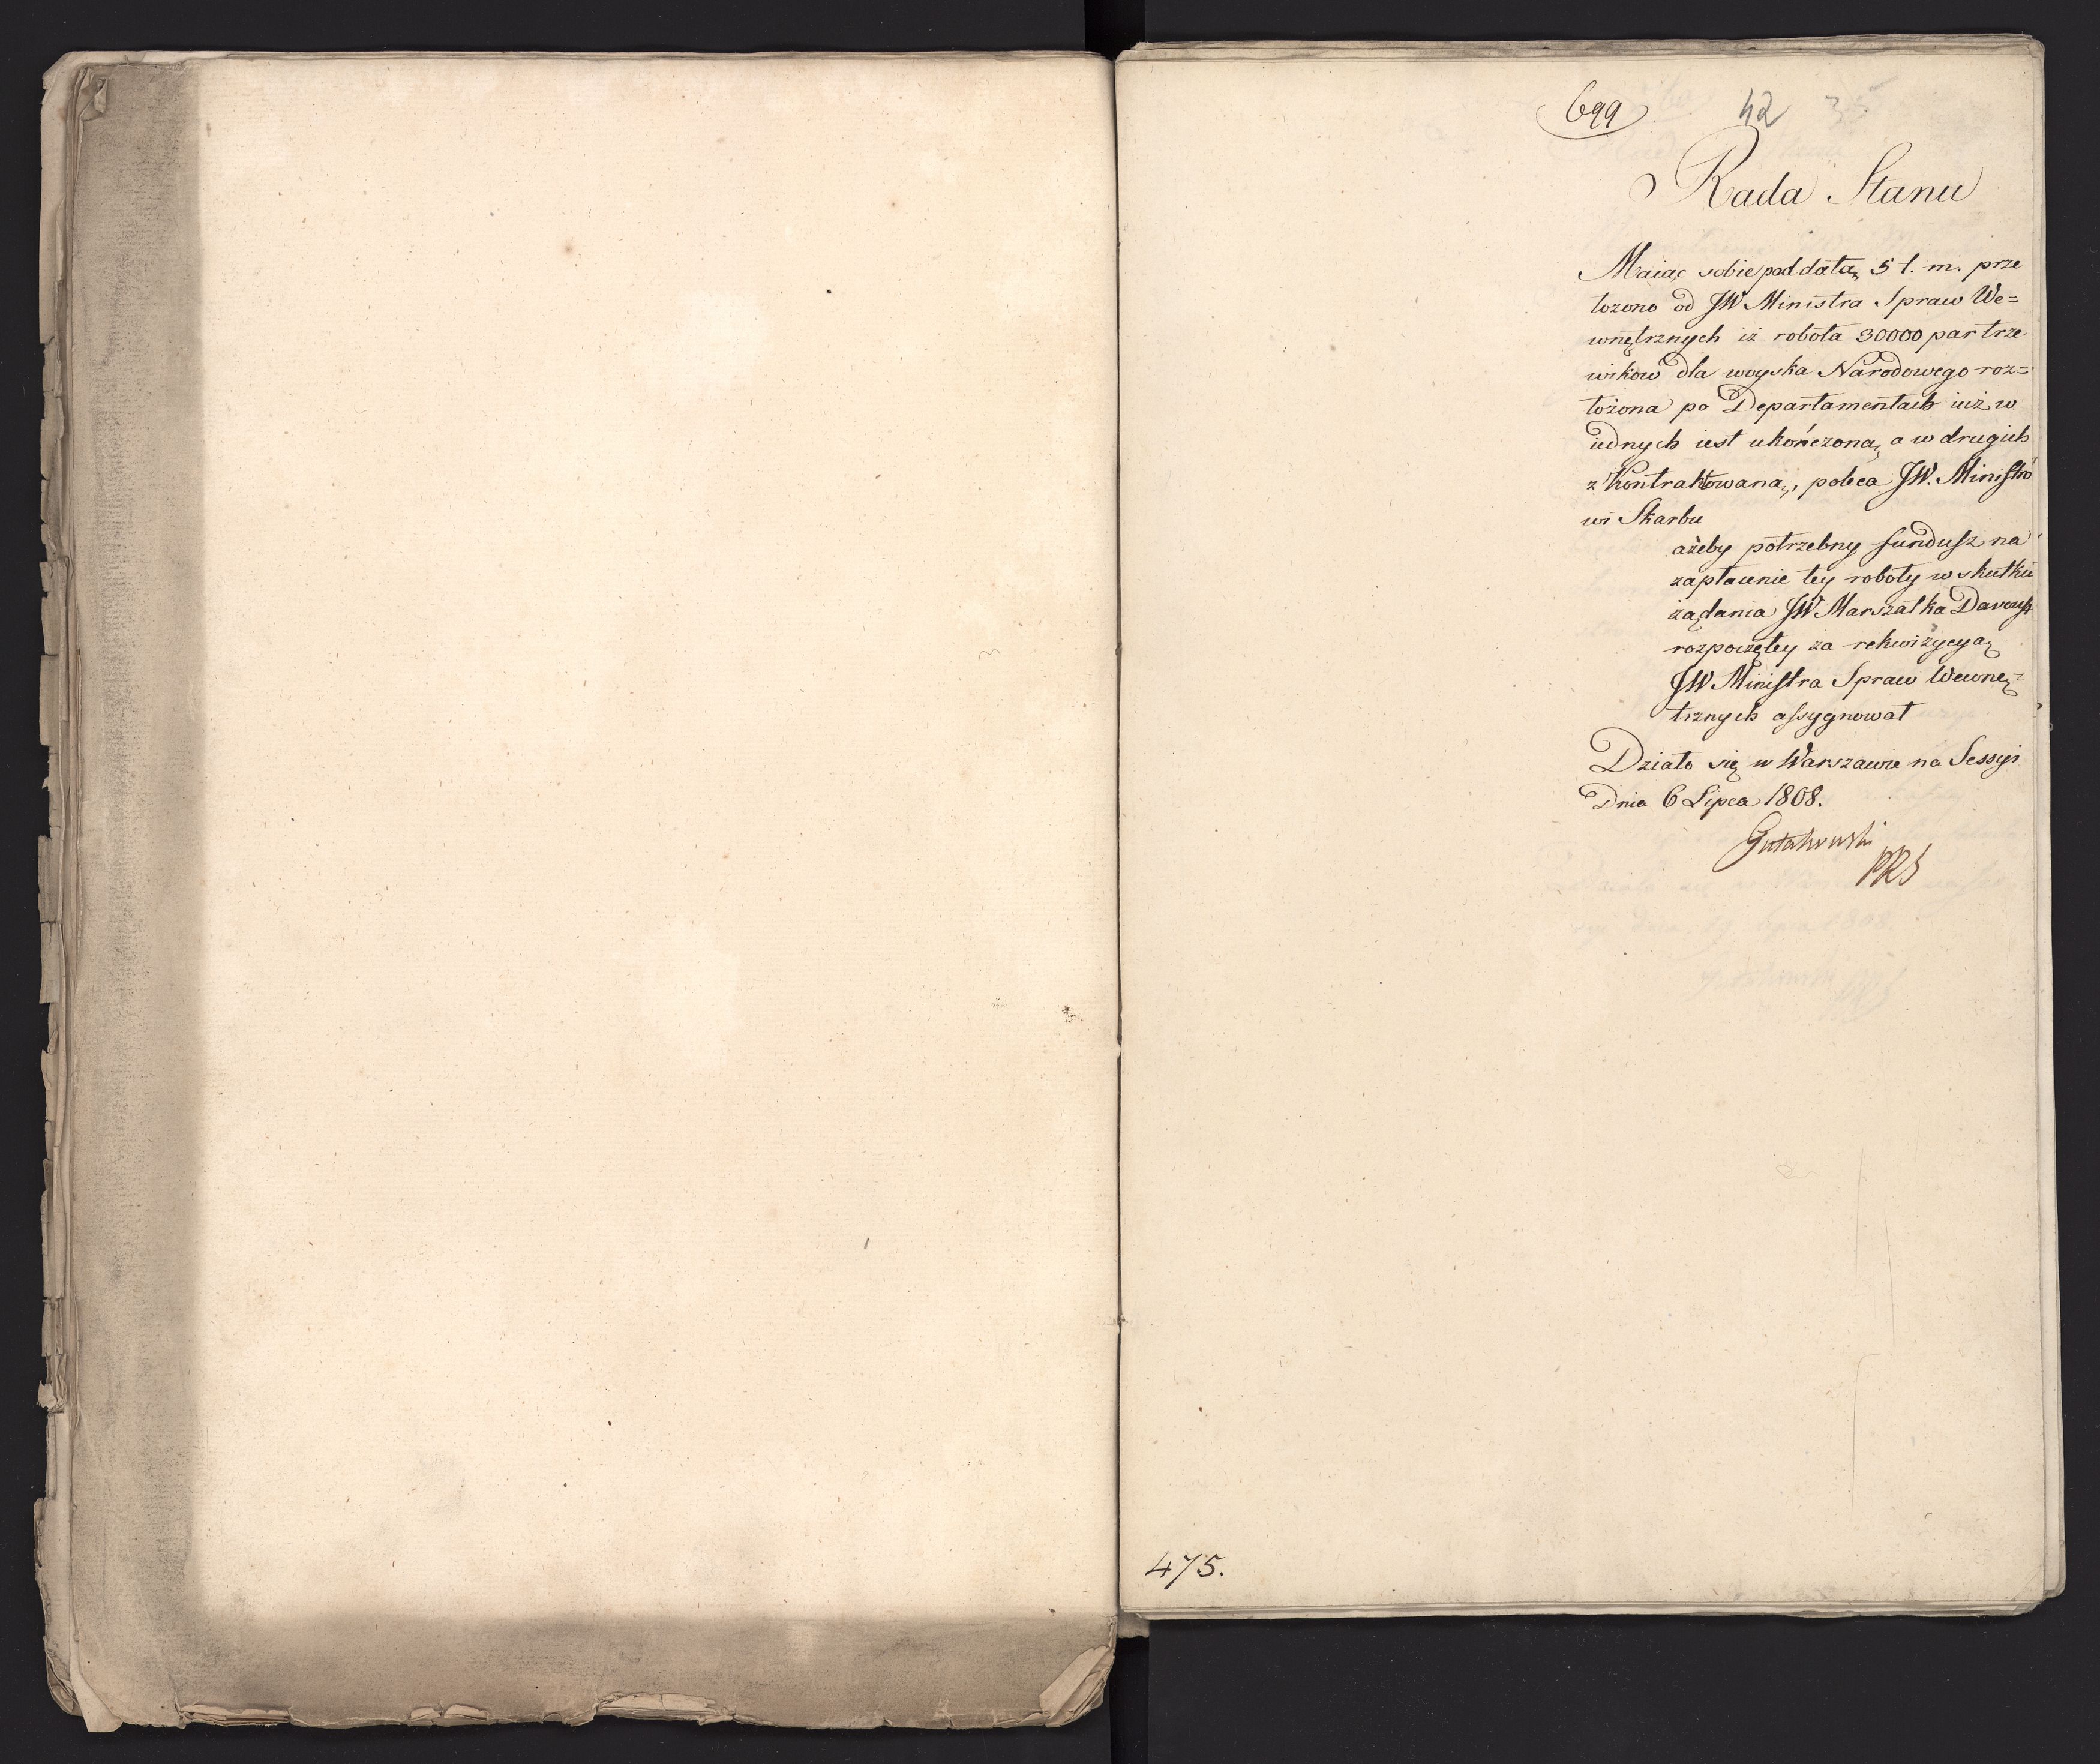 699 42 35
Rada Stanu
Maiąc sobie pod datą 5 t. m. prze
łozono od JW Ministra Spraw We=
wnętrznych iż robota 30000 par trze
wikow dla woyska Narodowego roz=
łożona po Departamentach iuż w
iednych iest ukończoną, a w drugich
z kontraktowaną, poleca JW. Ministro
wi Skarbu
ażeby potrzebny fundusz na
zapłacenie tey roboty w skutku
żądania JW Marszałka Davoust
rozpoczętey za rekwizycyą
JW Ministra Spraw Wewnę=
trznych assygnował
Działo się w Warszawie na Sessyi
Dnia 6 Lipca 1808.
Gutakowski
PRS
475.